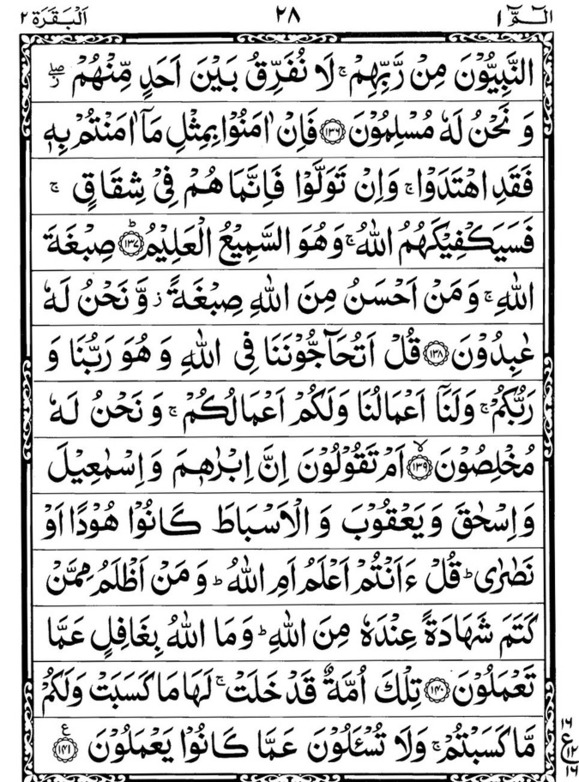 الٓمّٓ ١ ٢٨ اَلْبَقَرَة ٢
النَّبِيُّوْنَ مِنْ رَّبِّهِمْ ۚ لَا نُفَرِّقُ بَيْنَ اَحَدٍ مِّنْهُمْ ۖ ز
وَ نَحْنُ لَهٗ مُسْلِمُوْنَ ﴿۱۳۶﴾ فَاِنْ اٰمَنُوْا بِمِثْلِ مَاۤ اٰمَنْتُمْ بِهٖ
فَقَدِ اهْتَدَوْا ۚ وَاِنْ تَوَلَّوْا فَاِنَّمَا هُمْ فِىْ شِقَاقٍ ۚ
فَسَيَكْفِيْكَهُمُ اللّٰهُ ۚ وَهُوَ السَّمِيْعُ الْعَلِيْمُ ؕ﴿۱۳۷﴾ صِبْغَةَ
اللّٰهِ ۚ وَمَنْ اَحْسَنُ مِنَ اللّٰهِ صِبْغَةً ز وَّنَحْنُ لَهٗ
عٰبِدُوْنَ ﴿۱۳۸﴾ قُلْ اَتُحَآجُّوْنَنَا فِى اللّٰهِ وَ هُوَ رَبُّنَا وَ
رَبُّكُمْ ۚ وَلَنَاۤ اَعْمَالُنَا وَلَكُمْ اَعْمَالُكُمْ ۚ وَ نَحْنُ لَهٗ
مُخْلِصُوْنَ ۙ﴿۱۳۹﴾ اَمْ تَقُوْلُوْنَ اِنَّ اِبْرٰهٖمَ وَ اِسْمٰعِيْلَ
وَ اِسْحٰقَ وَ يَعْقُوْبَ وَ الْاَسْبَاطَ كَانُوْا هُوْدًا اَوْ
نَصٰرٰى ؕ قُلْ ءَاَنْتُمْ اَعْلَمُ اَمِ اللّٰهُ ؕ وَ مَنْ اَظْلَمُ مِمَّنْ
كَتَمَ شَهَادَةً عِنْدَهٗ مِنَ اللّٰهِ ؕ وَمَا اللّٰهُ بِغَافِلٍ عَمَّا
تَعْمَلُوْنَ ﴿۱۴۰﴾ تِلْكَ اُمَّةٌ قَدْ خَلَتْ ۚ لَهَا مَا كَسَبَتْ وَلَكُمْ
مَّا كَسَبْتُمْ ۚ وَلَا تُسْـَٔلُوْنَ عَمَّا كَانُوْا يَعْمَلُوْنَ ﴿۱۴۱﴾ ع
١٦
ع
١٢
١٦